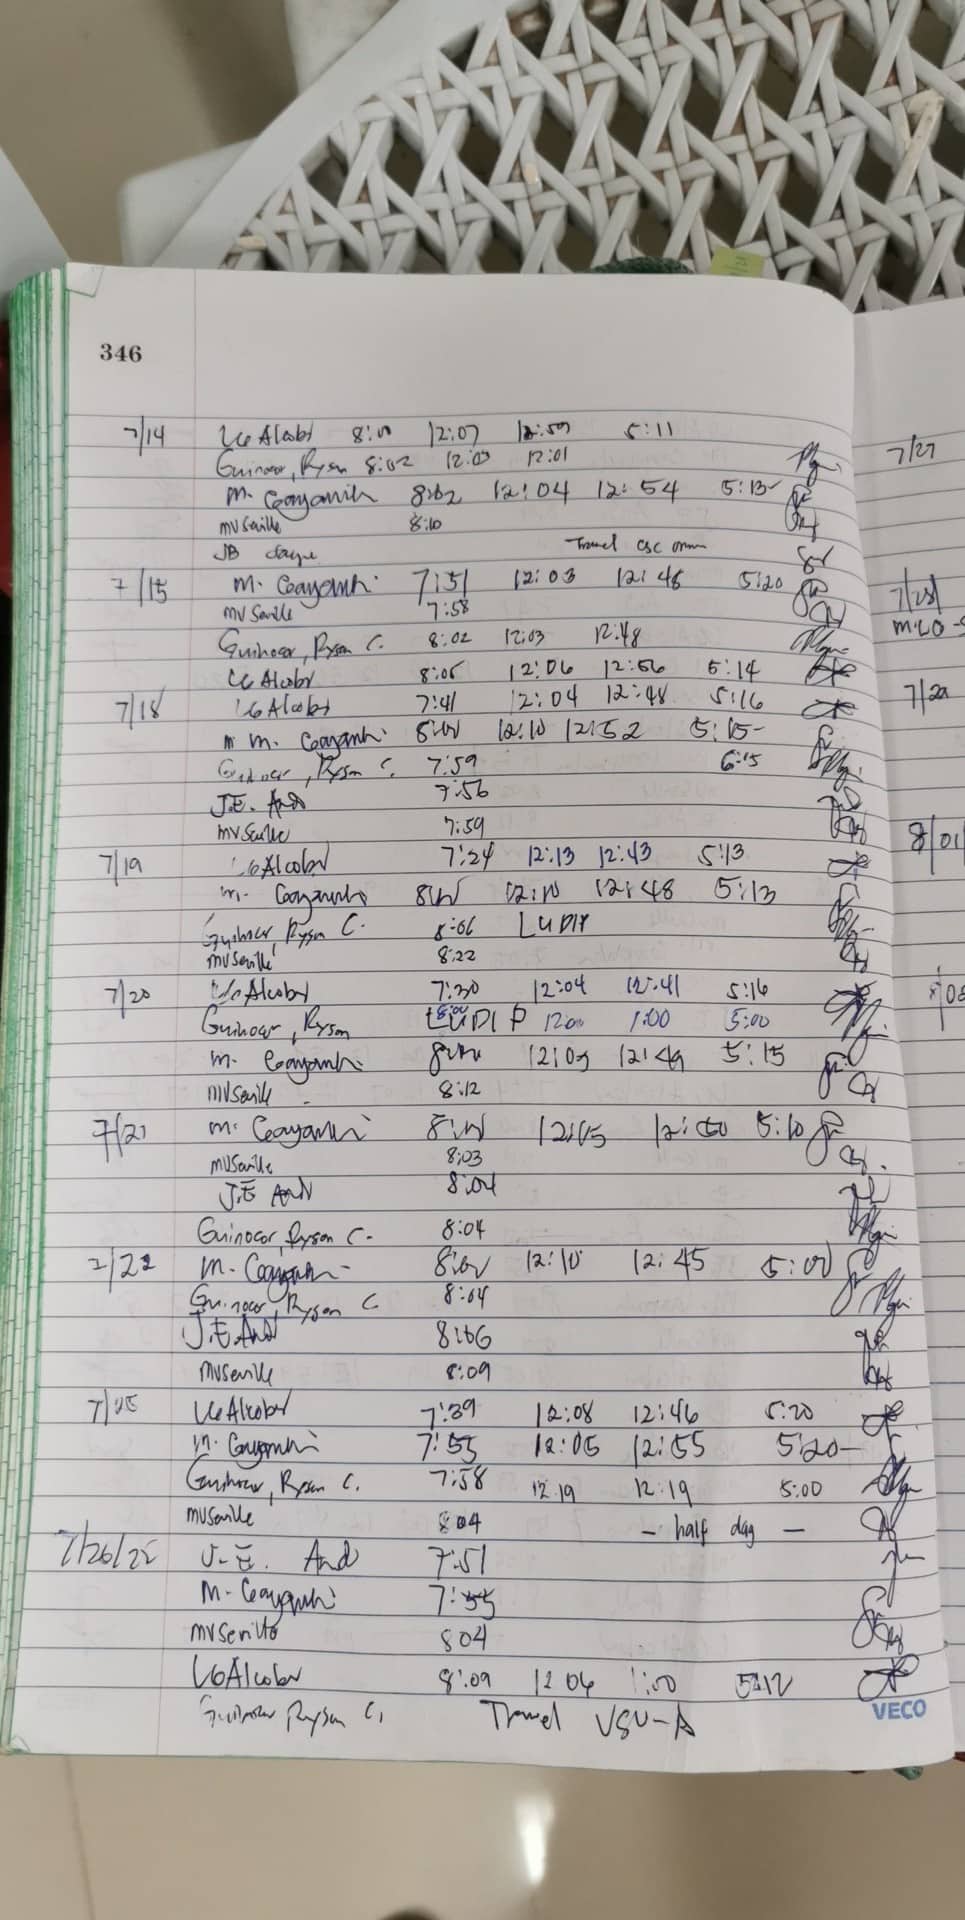 346
7/14 LG Alcober 8:00 12:07 12:59 5:11
Guinocor, Ryson 8:02 12:00 12:01
M. 8:02 12:04 12:54 5:13
MV Seville 8:10
JB Travel CSC
7/15 M. 7:51 12:03 12:48 5:20
MV Seville 7:58
Guinocor, Ryson C. 8:02 12:03 12:48
LG Alcober 8:05 12:06 12:56 5:14
7/18 LG Alcober 7:41 12:04 12:48 5:16
M. 8:00 12:10 12:52 5:15
Guinocor, Ryson C. 7:59 6:15
J.E. And 7:56
MV Seville 7:59
7/19 LG Alcober 7:24 12:13 12:43 5:13
M. 8:00 12:10 12:48 5:13
Guinocor, Ryson C. 8:06 LUDIP
MV Seville 8:22
7/20 LG Alcober 7:30 12:04 12:41 5:16
Guinocor, Ryson 8:00 LUDIP 12:00 1:00 5:00
M. 8:00 12:09 12:49 5:15
MV Seville 8:12
7/21 M. 8:00 12:05 12:50 5:10
MV Seville 8:03
J.E And 8:04
Guinocor, Ryson C. 8:04
7/22 M. 8:00 12:10 12:45 5:00
Guinocor, Ryson C. 8:04
J.E. And 8:06
MV Seville 8:09
7/25 LG Alcober 7:39 12:08 12:46 5:20
M. 7:55 12:05 12:55 5:20
Guinocor, Ryson C. 7:58 12:19 12:19 5:00
MV Seville 8:04 - half day -
7/26/22 J.E. And 7:51
M. 7:55
MV Seville 804
LG Alcober 8:09 12 06 1:00 5:12
Guinocor Ryson C. Travel VSU-A
VECO
7/27
7/28
7/29
8/01